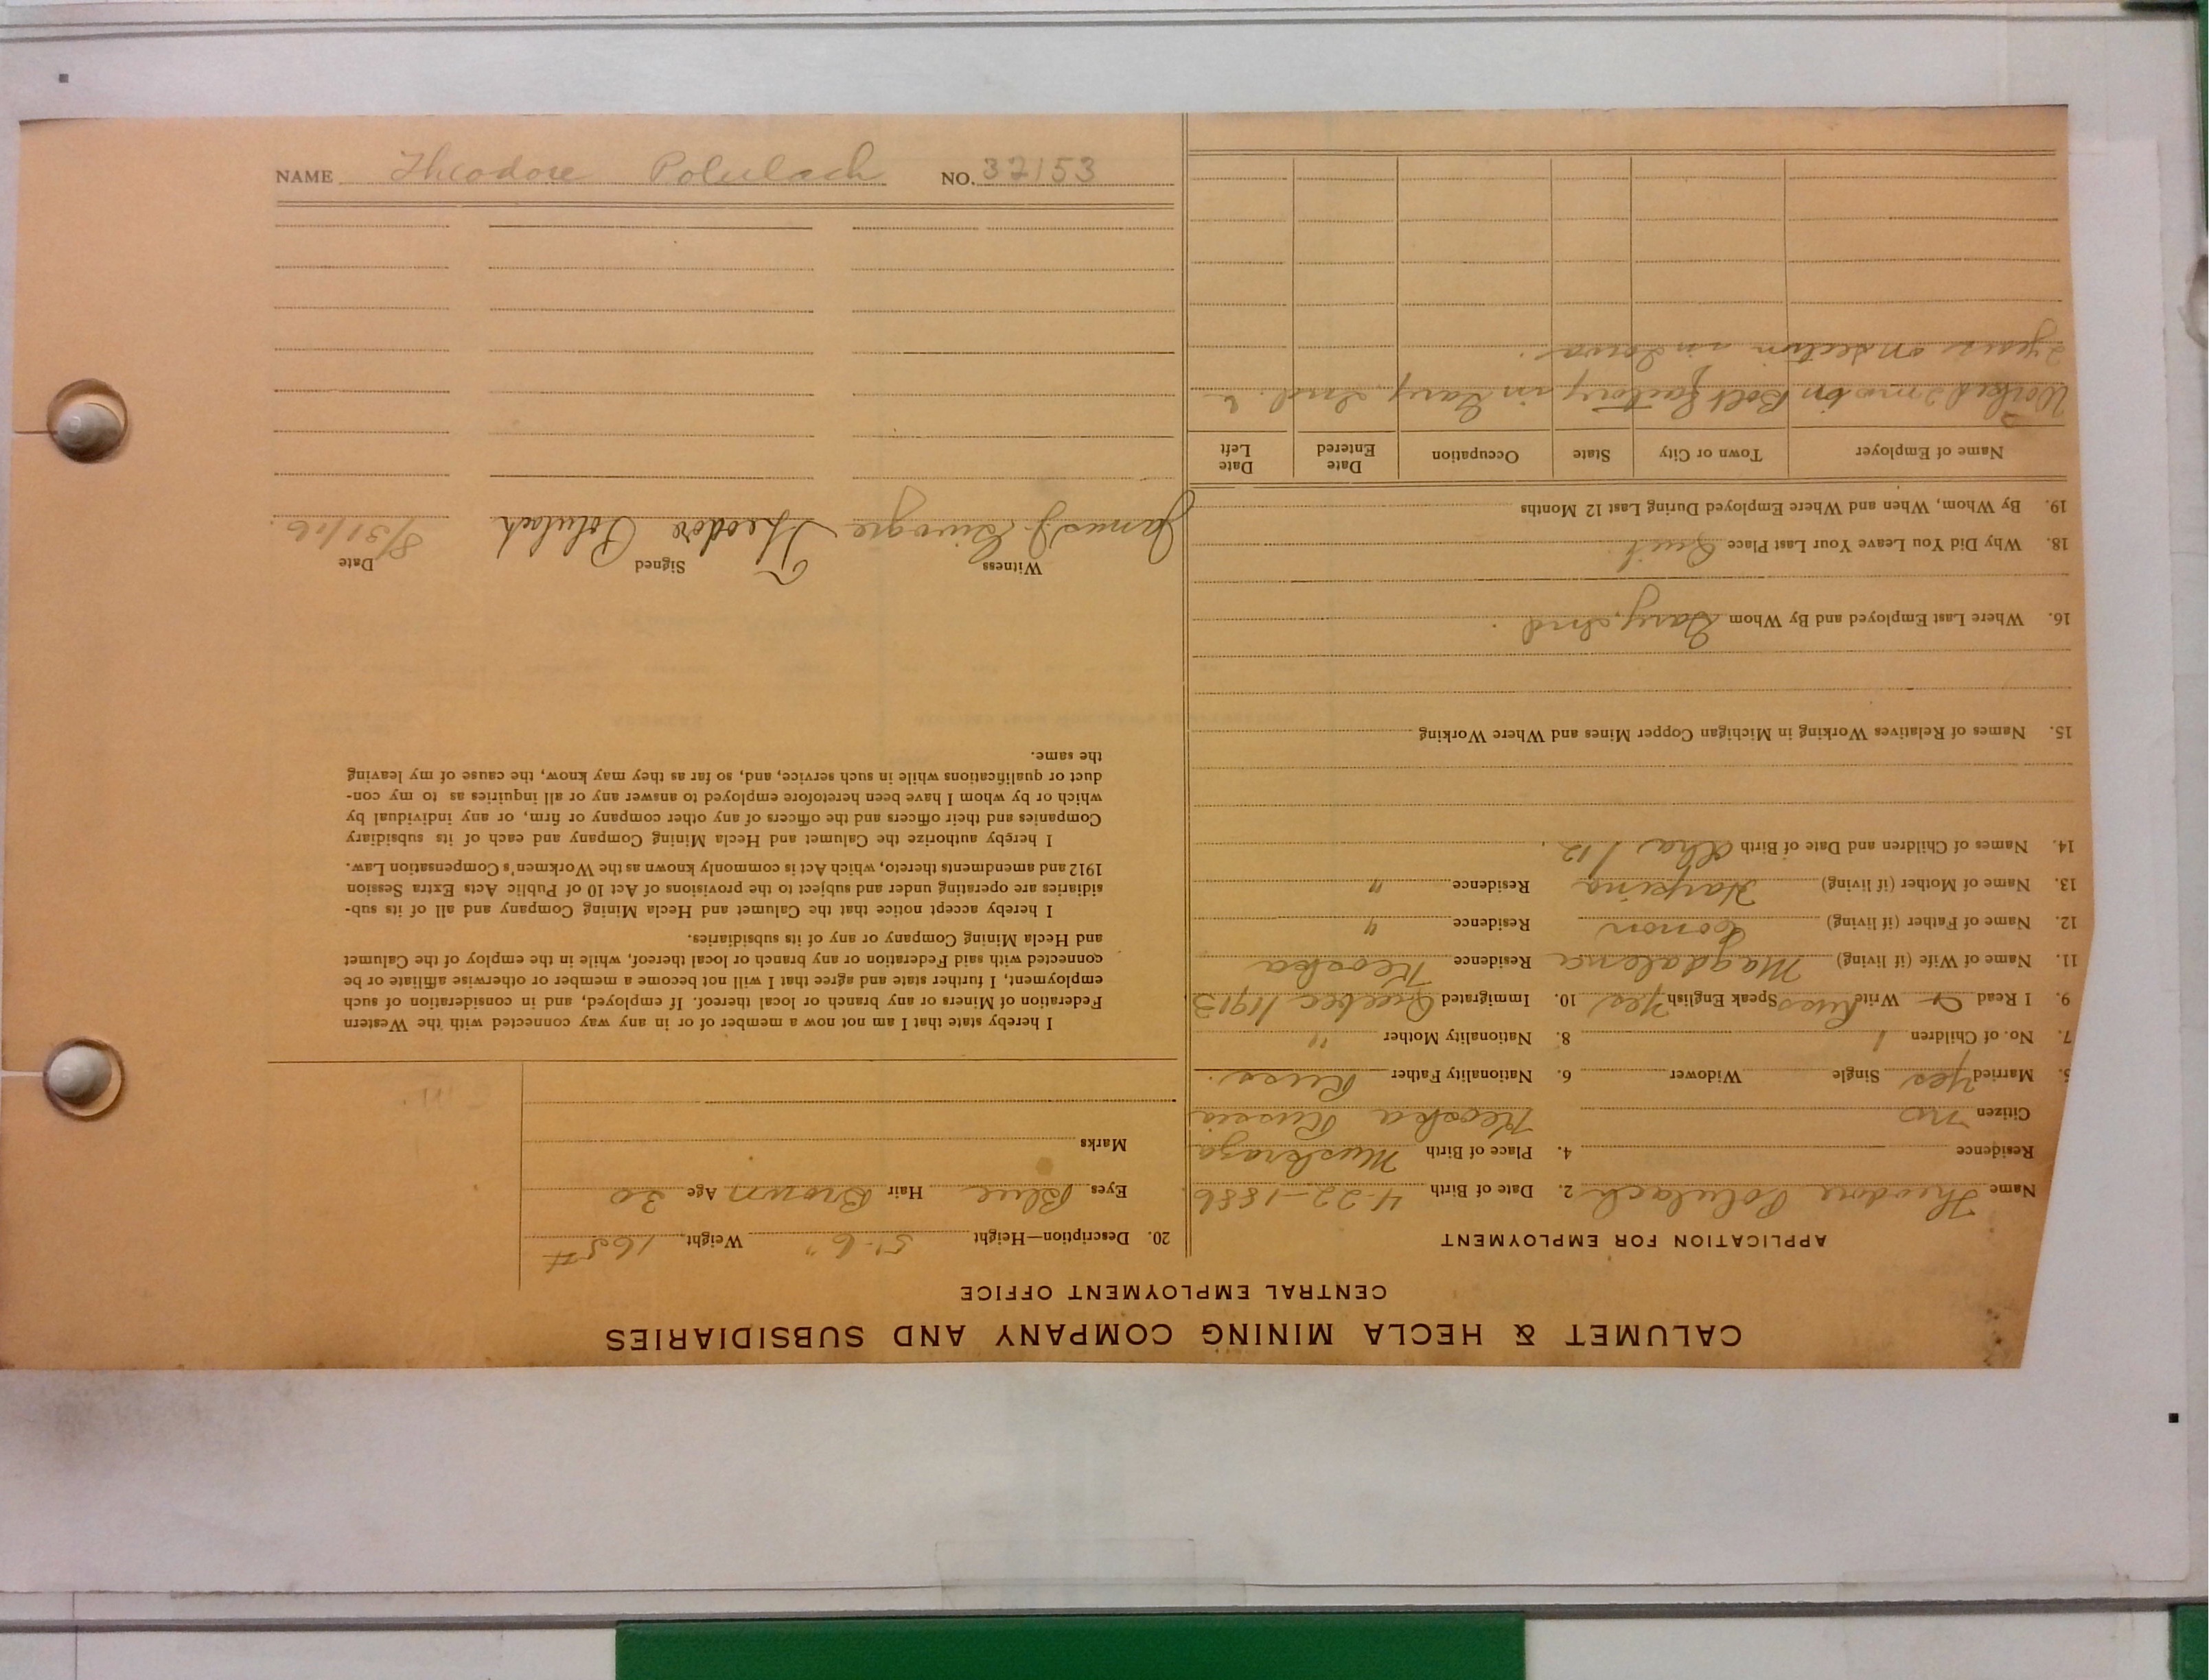 CALUMET & HECLA MINING COMPANY AND SUBSIDIARIES
CENTRAL EMPLOYMENT OFFICE
APPLICATION FOR EMPLOYMENT
Name Theodore Polulach 2. Date of Birth 4-22-1886
Residence 4. Place of Birth
Citizen no Russia
5. Married Yes Single Widower 6. Nationality Father Russ.
7. No. of Children 1 8. Nationality Mother "
9. I Read & Write Russ Speak English Yes 10. Immigrated Quebec 1913
11. Name of Wife (if living) Magdalena Residence
12. Name of Father (if living) Residence "
13. Name of Mother (if living) Residence "
14. Names of Children and Date of Birth
15. Names of Relatives Working in Michigan Copper Mines and Where Working
16. Where Last Employed and By Whom Gary, Ind.
18. Why Did You Leave Your Last Place Quit.
19. By Whom, When and Where Employed During Last 12 Months
Name of Employer Town or City State Occupation Date Entered Date Left
Worked 2 mos in Bolt factory in Gary, Ind. &
2 years on section in Iowa.
20. Description—Height 5'-6" Weight 165 #
Eyes Blue Hair Brown Age 30
Marks
I hereby state that I am not now a member of or in any way connected with the Western
Federation of Miners or any branch or local thereof. If employed, and in consideration of such
employment, I further state and agree that I will not become a member or otherwise affiliate or be
connected with said Federation or any branch or local thereof, while in the employ of the Calumet
and Hecla Mining Company or any of its subsidiaries.
I hereby accept notice that the Calumet and Hecla Mining Company and all of its sub-
sidiaries are operating under and subject to the provisions of Act 10 of Public Acts Extra Session
1912 and amendments thereto, which Act is commonly known as the Workmen's Compensation Law.
I hereby authorize the Calumet and Hecla Mining Company and each of its subsidiary
Companies and their officers and the officers of any other company or firm, or any individual by
which or by whom I have been heretofore employed to answer any or all inquiries as to my con-
duct or qualifications while in such service, and, so far as they may know, the cause of my leaving
the same.
Witness Signed Date
James J. Theodore Polulach 8/31/16.
NAME Theodore Polulach NO. 32153